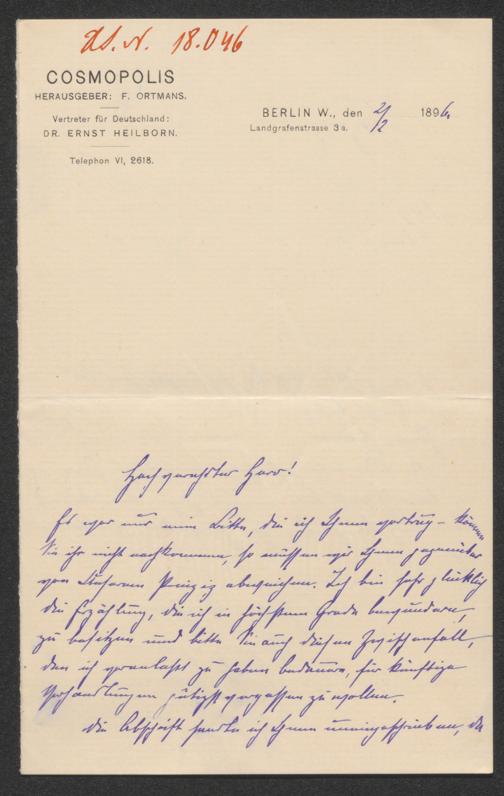 H.I.N. 18.046
COSMOPOLIS
HERAUSGEBER: F. ORTMANS.
Vertreter für Deutschland:
DR. ERNST HEILBORN.
Telephon VI, 2618.
BERLIN W., den 2/2 1896.
Landgrafenstrasse 3a.
Hochverehrter Herr!
Es war nur eine Bitte, die ich Ihnen vortrug – können
Sie ihr nicht nachkommen, so müssen wir Ihnen gegenüber
von unserem Prinzip abweichen. Ich bin sehr glücklich
die Erzählung, die ich in höchstem Grade bewundere,
zu besitzen und bitte Sie auch diesen Zwischenfall,
den ich veranlaßt zu haben bedaure, für künftige
Verhandlungen gütigst vergessen zu wollen.
Die Abschrift sandte ich Ihnen uneingeschrieben, da